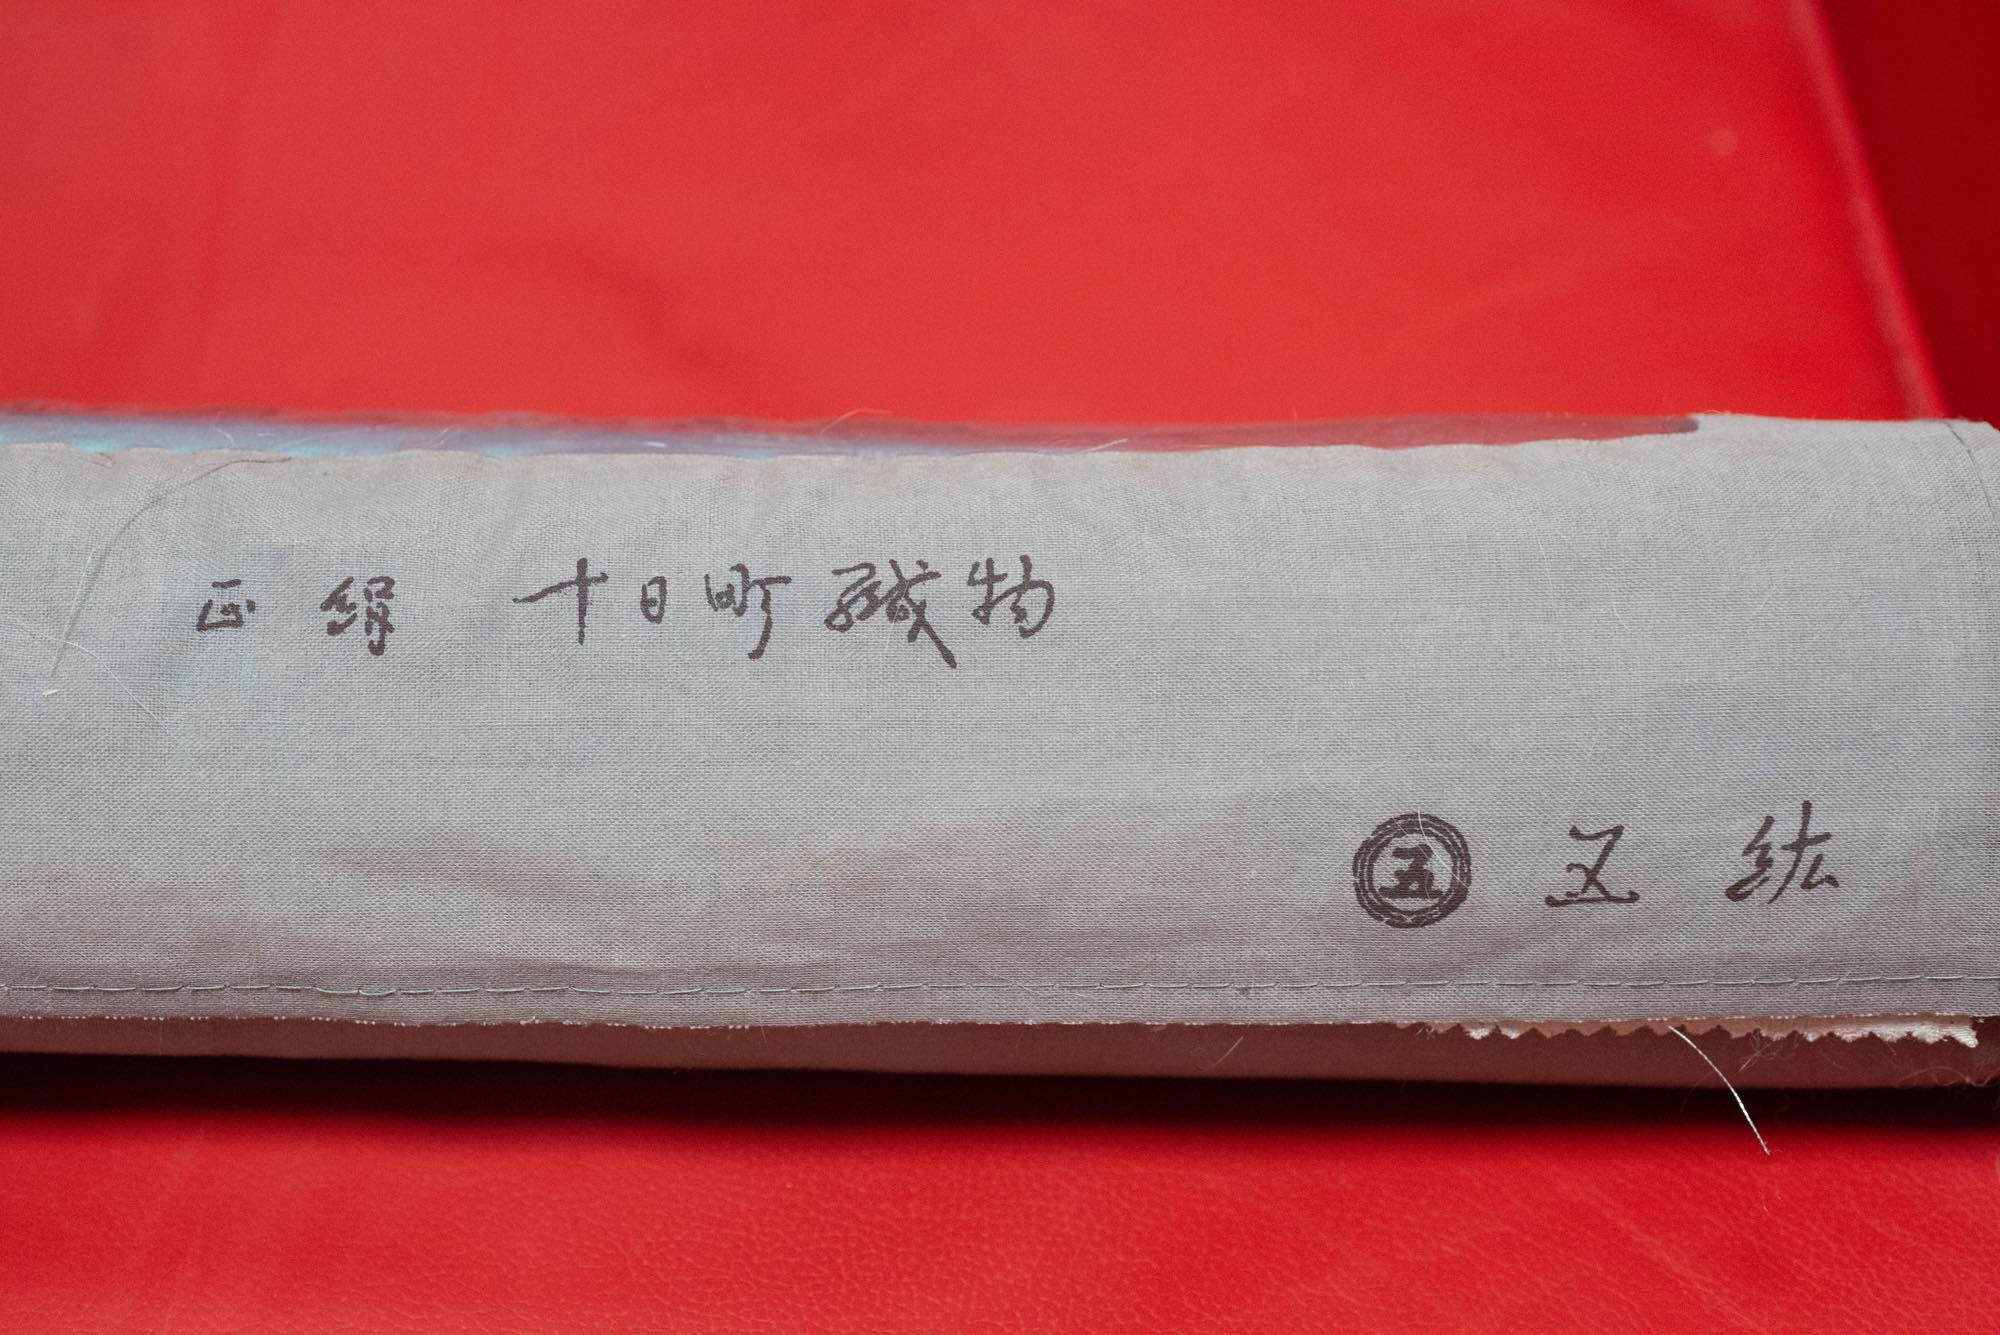 正絹 十日町織物
五 又紘